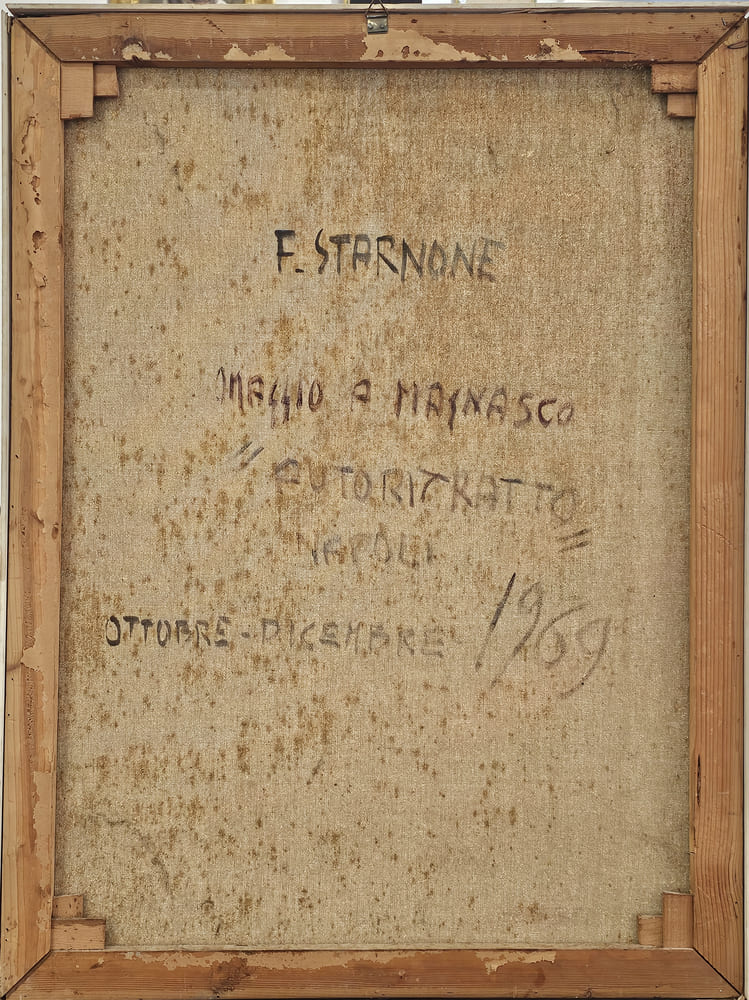 F. STARNONE
OMAGGIO A MAGNASCO
" AUTORITRATTO "
NAPOLI
OTTOBRE - DICEMBRE 1969